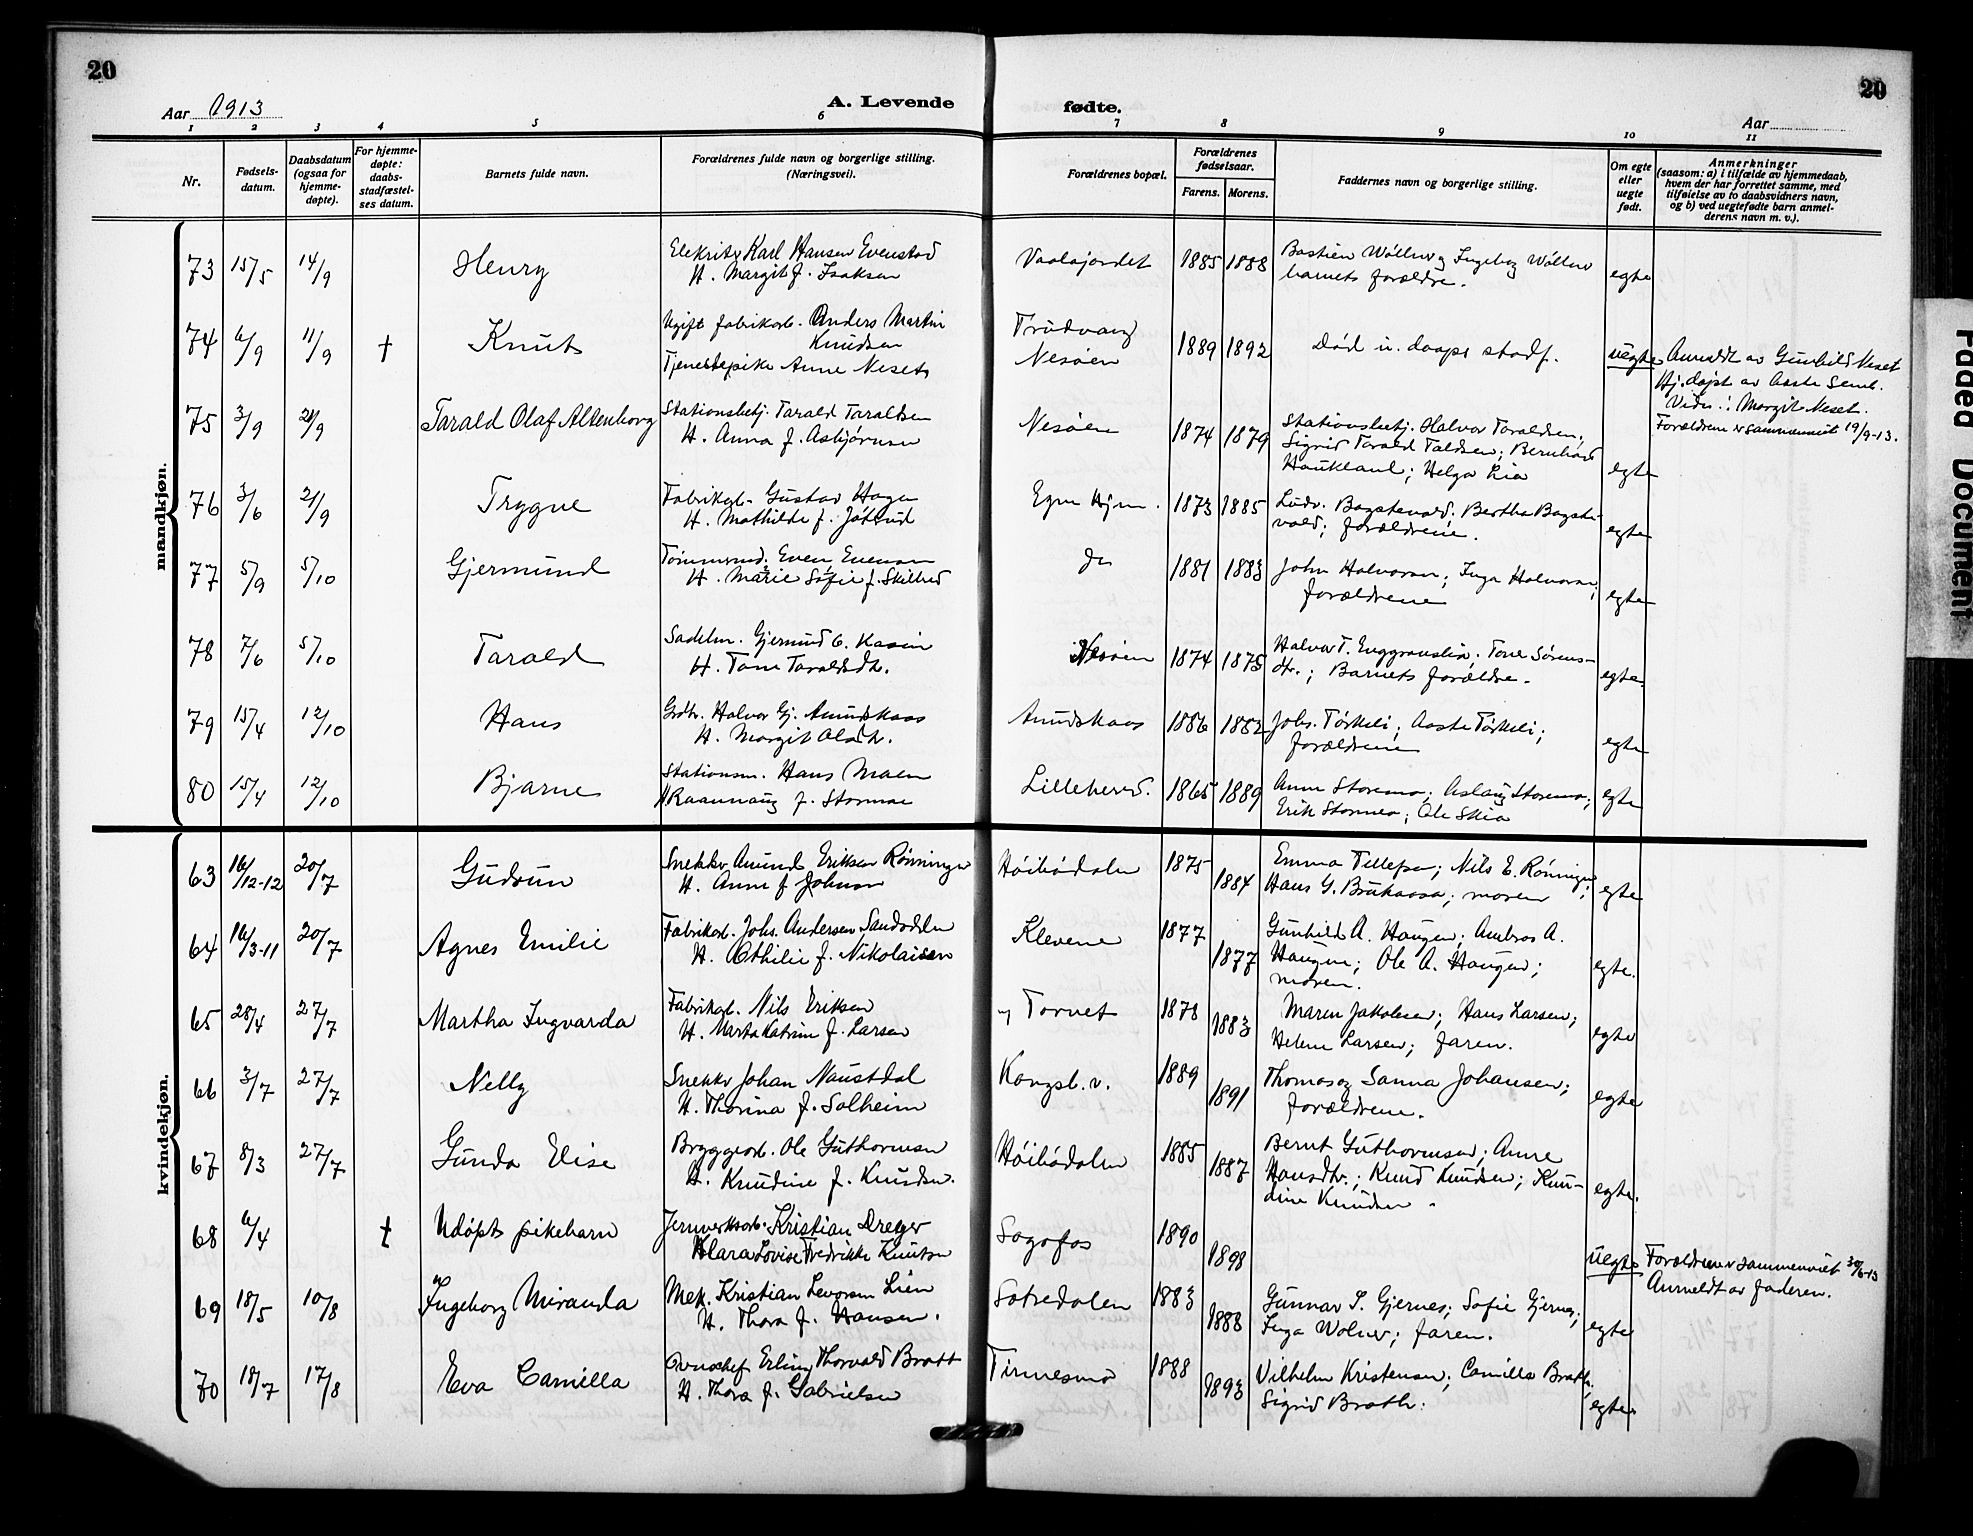 20
20
Aar 1913
A. Levende fødte.
Aar
1 2 3 4 5 6 7 8 9 10 11
Nr.
Fødsels-
datum.
Daabsdatum
(ogsaa for
hjemme-
døpte).
For hjemme-
døpte:
daabs-
stadfæstel-
ses datum.
Barnets fulde navn.
Forældrenes fulde navn og borgerlige stilling.
(Næringsvei).
Forældrenes bopæl.
Forældrenes
fødselsaar.
Farens. Morens.
Faddernes navn og borgerlige stilling.
Om egte
eller
uegte
født.
Anmerkninger
(saasom: a) i tilfælde av hjemmedaab,
hvem der har forrettet samme, med
tilføielse av to daabsvidners navn,
og b) ved uegtefødte barn anmel-
derens navn m. v.).
mandkjøn.
73 15/5 14/9 Henry
Karl Hansen Evenstad
H. Margit f. Isaksen
1885 1888
Ingeborg
barnets forældre.
egte
74 6/9 11/9 † Knut
Ugift fabrikarb. Anders Martin
Knudsen
Tjenestepike Anne Neset
Trudvang
Nesøen
1889 1892
Død u. daaps stadf.
uegte
Anmeldt av Gunhild Neset
Hj.døpt av Aaste
Vidn.: Margit Neset.
Forældrene er sammenviet 19/9-13.
75 3/9 21/9 Tarald Olaf Altenborg
Stationsbetj. Tarald Taraldsen
H. Anna f. Asbjørnsen
Nesøen
1874 1879
Stationsbetj. Halvor Taraldsen;
Sigrid Tarald Taldsen; Bernhard
Haukland; Helga Lia
egte
76 3/6 21/9 Trygve
Fabrikarb. Gustav Hagen
H. Mathilde f.
Egne Hjem.
1873 1885
Ludv. Bagstevold. Bertha Bagste-
vold; forældrene.
egte
77 5/9 5/10 Gjermund
Even Evensen
H. Marie Sofie f.
do
1881 1883
John Halvorsen; Inga Halvorsen;
forældrene
egte
78 7/6 5/10 Tarald
Sadelm. Gjermund G. Kaasin
H. Tone Taraldsdtr.
Nesøen
1874 1875
Halvor T. Tone Sørens-
dtr.; Barnets forældre.
egte.
79 15/4 12/10 Hans
Grdbr. Halvor Gj. Amundskaas
H. Margit Olsdtr.
Amundskaas
1886 1882
Johs. Tørkeli; Aaste Tørkeli;
forældrene
egte
80 15/4 12/10 Bjarne
Stationsm. Hans Moen
H Raannaug f. Stormoe
Lilleherred.
1865 1889
Anne Storemo; Aslaug Storemo;
Erik Stormo; Ole Skia
egte
kvindekjøn.
63 16/12-12 20/7 Gudrun
Snekker Amund Eriksen Rønningen
H. Anne f Johnsen
Høibødalen
1875
1884
Emma Tellefsen; Nils E. Rønningen;
Hans G. Brukaasa; moren
egte
64 16/3-11 20/7 Agnes Emilie
Fabrikarb. Johs. Andersen Sandodden
H. Othilie f. Nikolaisen
Klevene
1877
1877
Gunhild A. Haugen; Ambros A.
Haugen; Ole A. Haugen;
moren.
egte.
65 28/4 27/7 Martha Ingvarda
Fabrikarb. Nils Eriksen
H. Marta Katrine f. Larsen
Torvet
1878
1883
Maren Jakobsen; Hans Larsen;
Helene Larsen; faren.
egte
66 3/7 27/7 Nelly
Snekker Johan Naustdal
H. Thorina f. Solheim
Kongsb. v.
1889
1891
Thomas og Sanna Johansen;
forældrene.
egte
67 8/3 27/7 Gunda Elise
Bryggearb. Ole Guthormsen
H. Knudine f. Knudsen.
Høibødalen
1885
1887
Bernt Guthormsen; Anne
Hansdtr.; Knud Knudsen; Knu-
dine Knudsen.
egte.
68 6/4 † Udøpt pikebarn
Jernverksarb. Kristian Dreyer
Klara Lovise Fredrikke Knutsen
Sagafos
1890
1898
uegte
Forældrene er sammenviet 30/6-13
Anmeldt av faderen.
69 18/5 10/8 Ingeborg Miranda
Mek. Kristian Levorsen Lien
H. Thora f. Hansen.
Sætredalen
1883
1888
Gunnar T. Gjernes; Sofie Gjernes;
Inga Wolner; faren.
egte
70 18/7 17/8 Eva Camilla
Erling Thorvald Bratt
H. Thora f. Gabrielsen
Tinnesmo
1888
1893
Vilhelm Kristensen; Camilla Brath;
Sigrid Brath.
egte
Paged Document